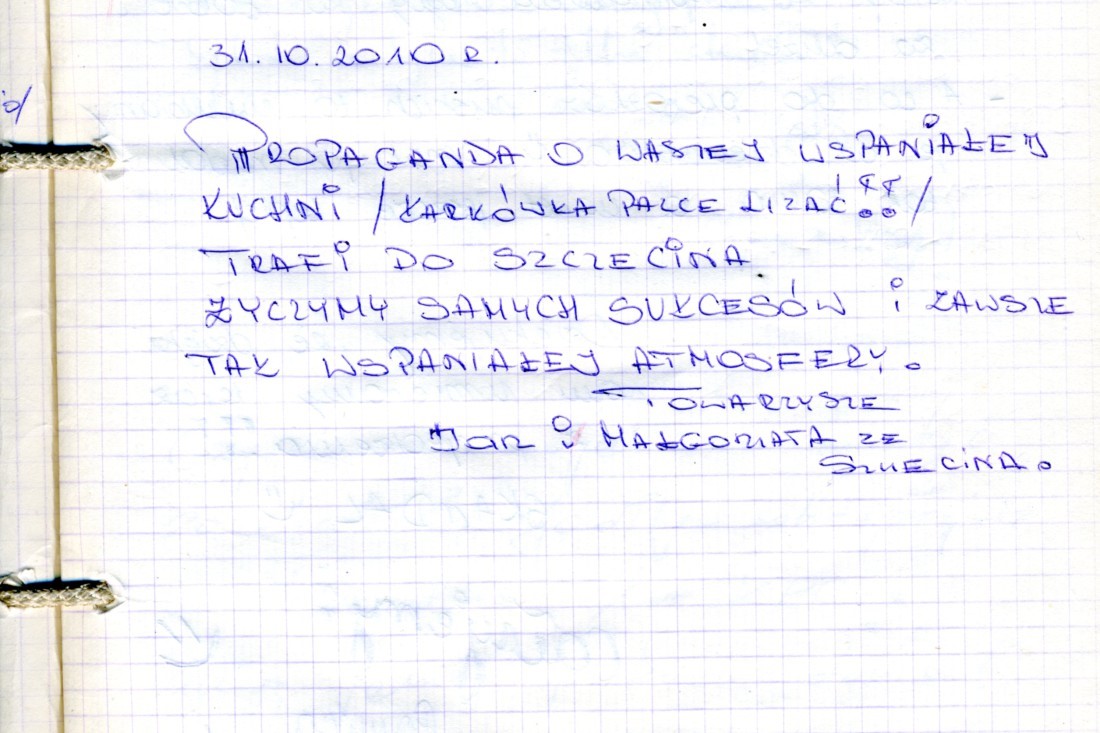 31.10.2010 R.
PROPAGANDA O WASZEJ WSPANIAŁEJ
KUCHNI /KARKÓWKA PALCE LIZAĆ!!!/
TRAFI DO SZCZECINA.
ŻYCZYMY SAMYCH SUKCESÓW i ZAWSZE
TAK WSPANIAŁEJ ATMOSFERY.
TOWARZYSZE
JAN i MAŁGORZATA ZE
SZCZECINA.